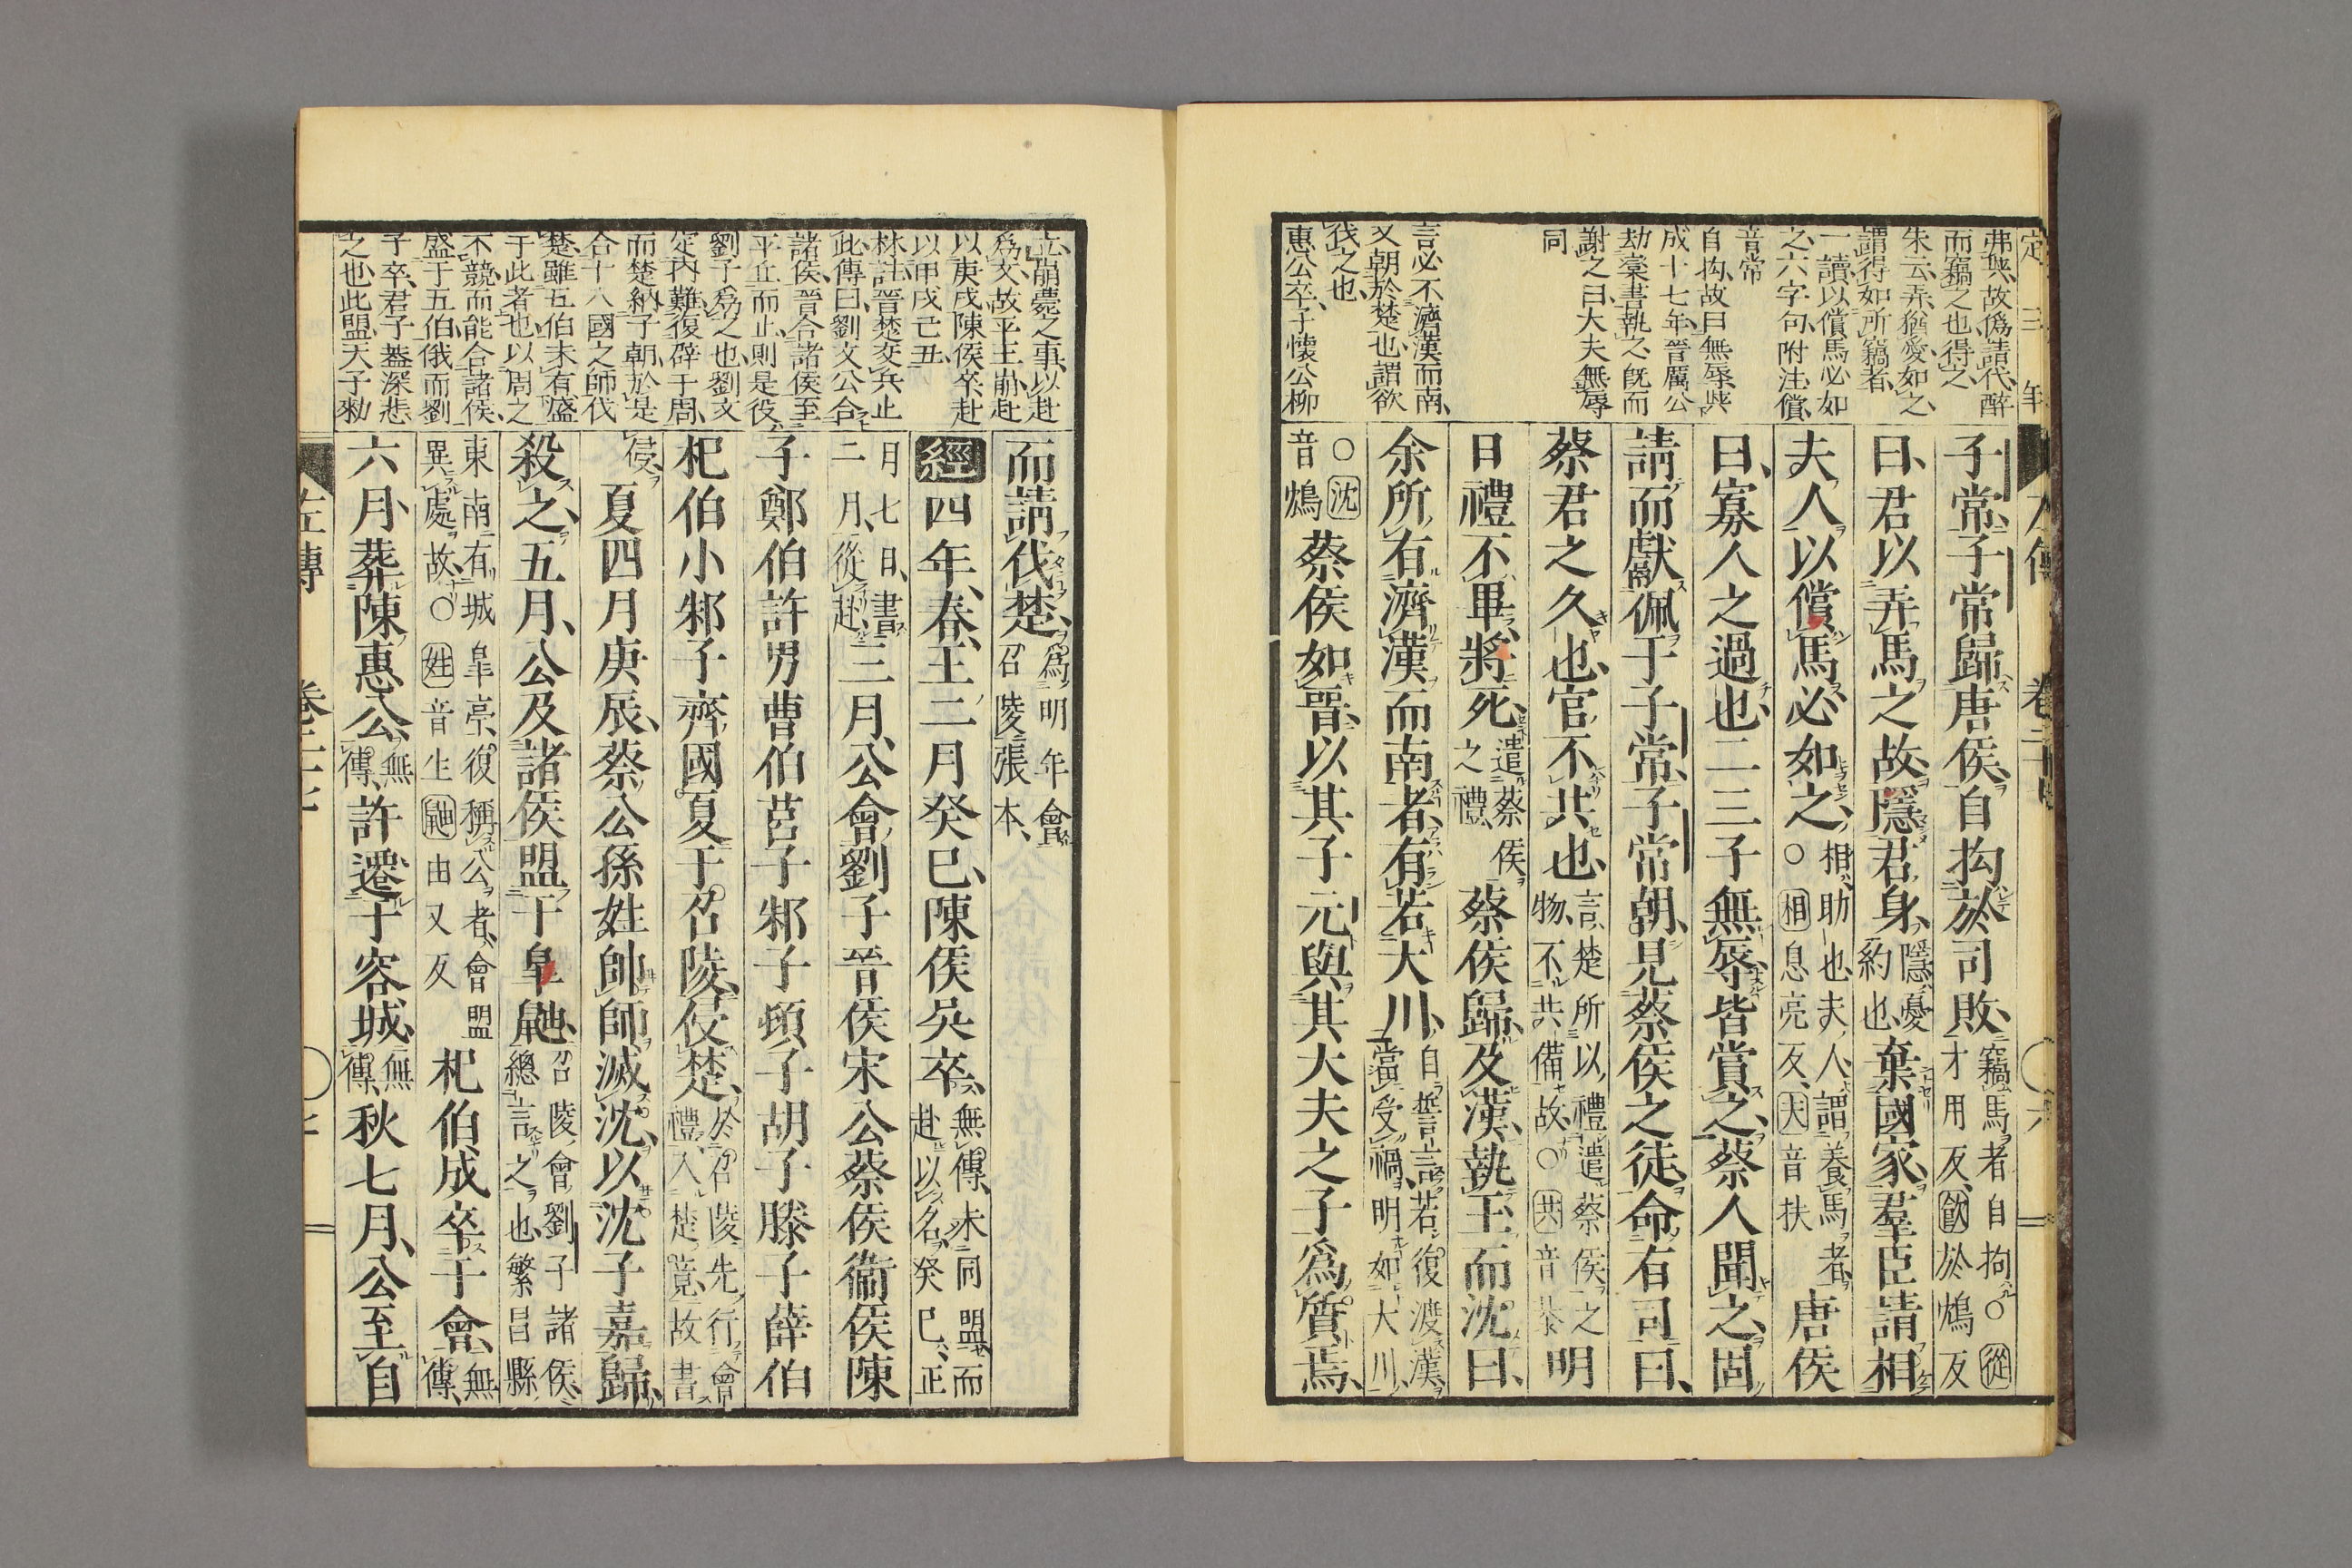 定三年
弗與故僞請代醉
而竊之也得之
朱云弄猶愛如之
謂得如所竊者
一讀以償馬必如
之六字句附注償
音常
自拘故曰無辱與
成十七年晉厲公
劫欒書執之旣而
謝之曰大夫無辱
同
言必不濟漢而南
又朝於楚也謂欲
伐之也
惠公卒子懷公柳
子常子常歸唐侯自拘於司敗竊馬者自拘○從
才用反飮於鴆反
曰君以弄馬之故隱君身隱憂
約也棄國家羣臣請相
夫人以償馬必如之○相助也夫人謂養馬者
相息亮反夫音扶唐侯
曰寡人之過也二三子無辱皆賞之蔡人聞之固
請而獻佩于子常子常朝見蔡侯之徒命有司曰
蔡君之久也官不共也言楚所以禮遣蔡侯之
物不共備故○共音恭明
日禮不畢將死遣蔡侯
之禮蔡侯歸及漢執玉而沈曰
余所有濟漢而南者有若大川自誓言若復渡漢
當受禍明如大川
○沈
音鴆蔡侯如晉以其子元與其大夫之子爲質焉
立崩薨之事以赴
爲文故平王崩赴
以庚戌陳侯卒赴
以甲戌己丑
林註晉楚交兵止
此傳曰劉文公合
諸侯晉合諸侯至
平丘而止則是役
劉子爲之也劉文
定內難復辟于周
而楚納子朝於是
合十八國之師伐
楚雖五伯未有盛
于此者也以周之
不競而能合諸侯
盛于五伯俄而劉
子卒君子蓋深悲
之也此盟天子勑
而請伐楚爲明年會
召陵張本
經四年春王二月癸巳陳侯吳卒無傳未同盟而
赴以名癸巳正
月七日書
二月從赴三月公會劉子晉侯宋公蔡侯衞侯陳
子鄭伯許男曹伯莒子邾子頓子胡子滕子薛伯
杞伯小邾子齊國夏于召陵侵楚於召陵先行會
禮入楚竟故書
侵夏四月庚辰蔡公孫姓帥師滅沈以沈子嘉歸
殺之五月公及諸侯盟于皐鼬召陵會劉子諸侯
總言之也繁昌縣
東南有城皐亭復稱公者會盟
異處故○姓音生鼬由又反杞伯成卒于會無
傳
六月葬陳惠公無
傳許遷于容城無
傳秋七月公至自
左傳